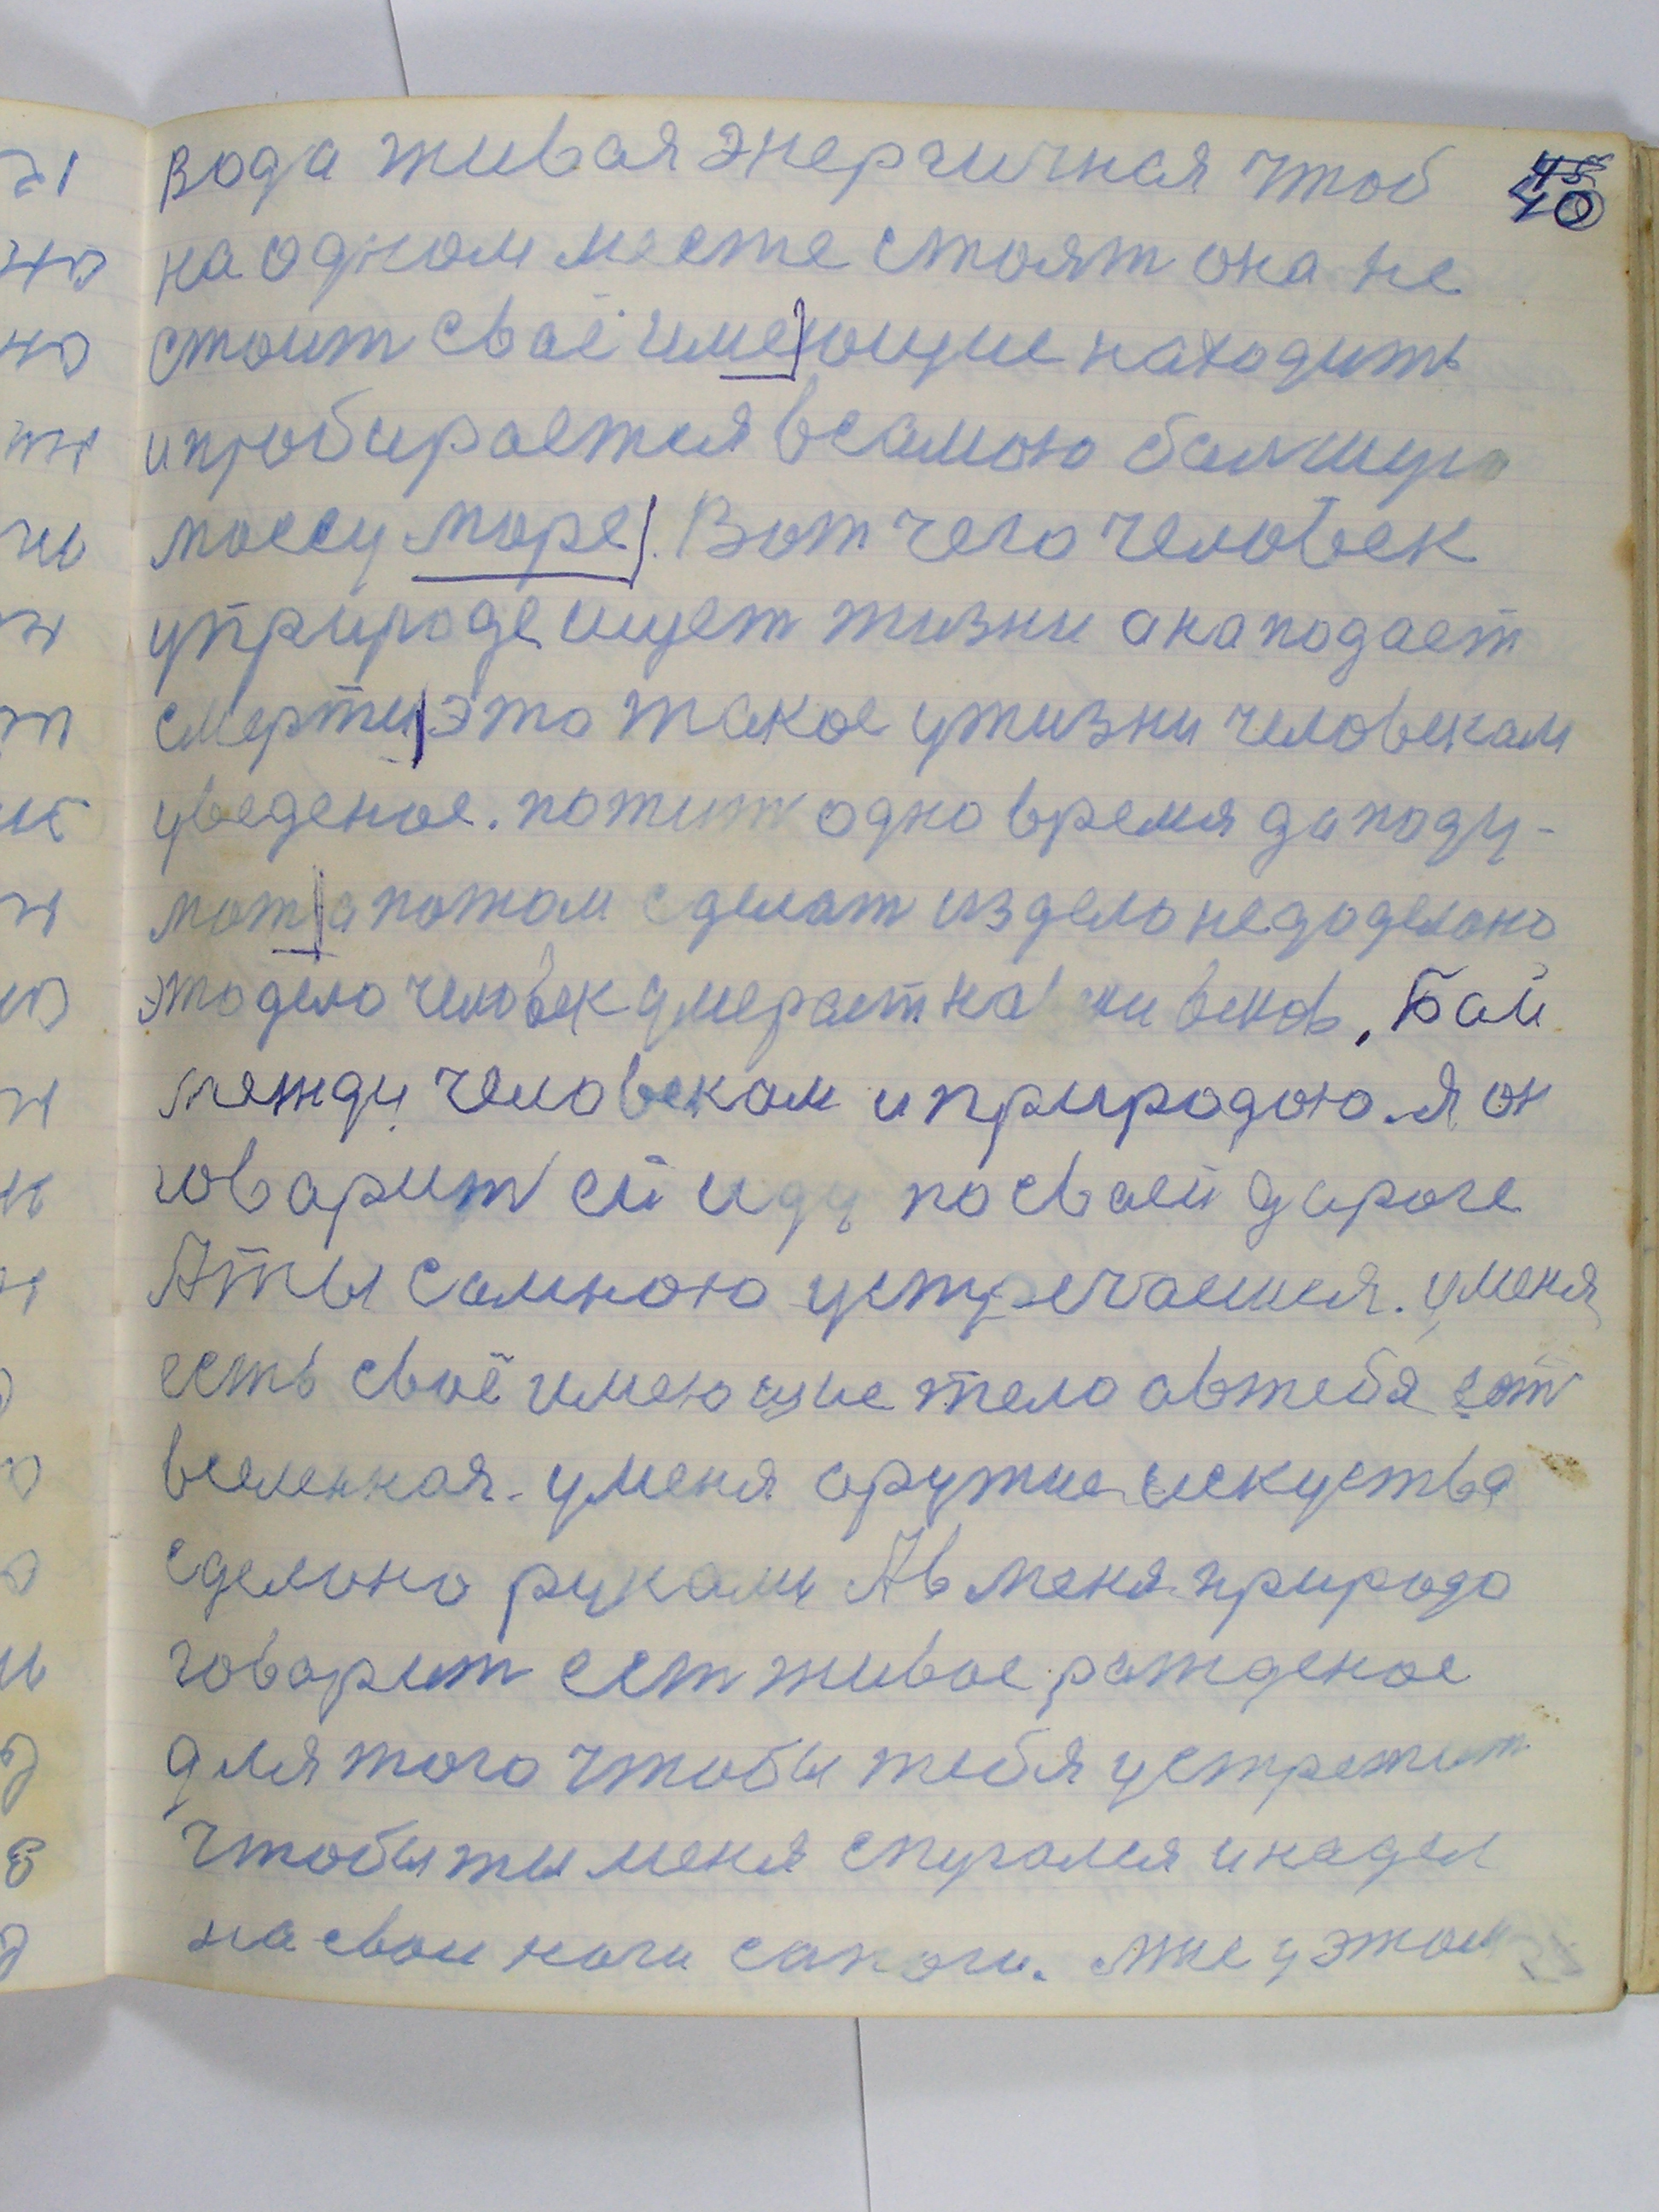 вода живая энергичная чтоб
на одном месте стоят она не
стоит своё имеющие находить
и пробирается в самою балшую
массу море. Вот чего человек
у природе ищет жизни а нападает
смерти это такое у жизни человекам
уведеное. пожит одно время да поду-
мат а потом сделат из дела недоделано
это дело человек умерает на веков. Бой
между человекам и природою. Я он
говарит ей иду по своей дароге
А ты самною устречаешся. у меня
есть своё имеющие тело а в тебя ест
вселенная. у меня оружие искуства
сделано руками А в меня природа
говорит ест живое рожденое
для того чтобы тебя устретит
чтобы ты меня спугался и надел
на свои ноги сапоги. мне у этом
40